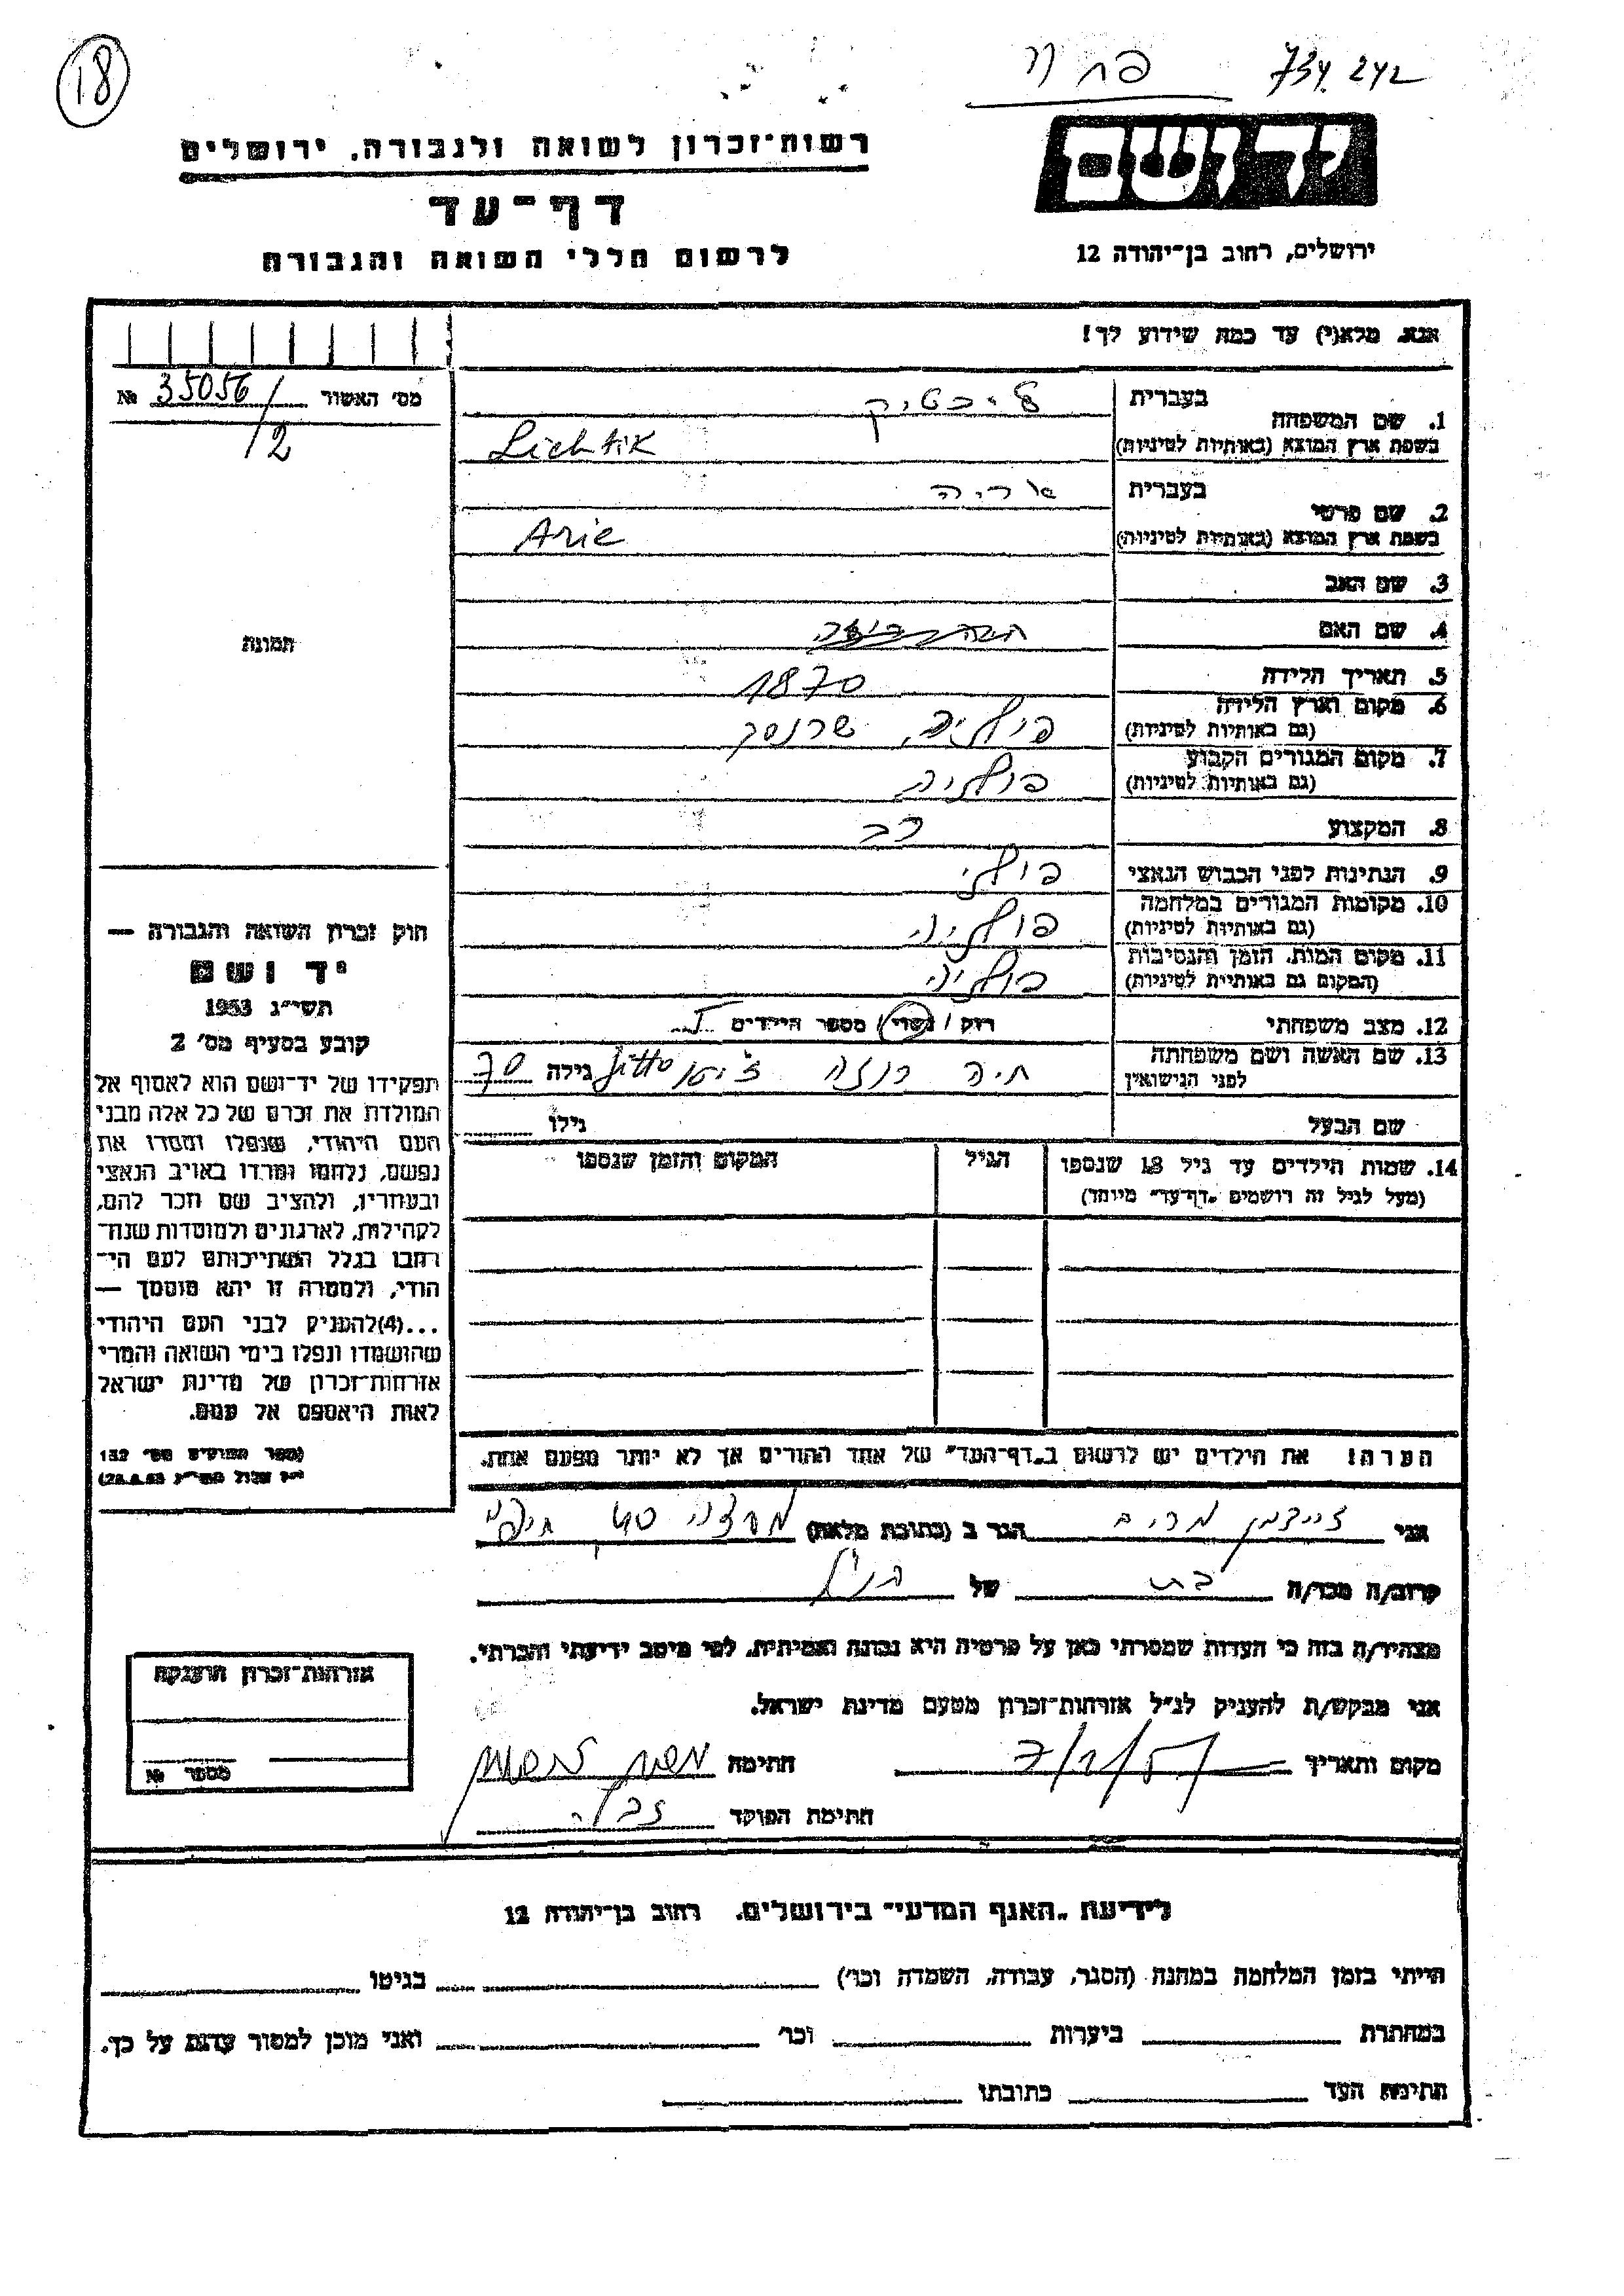 18
734 242
רשות־זכרון לשואה ולגבורה, ירושלים
יד ושם
דף־עד
לרשום חללי השואה והגבורה
ירושלים, רחוב בן־יהודה 12
אנא, מלא(י) עד כמה שידוע לך!
מס' האשור № 35056/2
1. שם המשפחה
בעברית ליכטיק
בשפת ארץ המוצא (באותיות לטיניות) Lichtik
2. שם פרטי
בעברית אריה
בשפת ארץ המוצא (באותיות לטיניות) Arie
3. שם האב
4. שם האם
תמונה
5. תאריך הלידה 1870
6. מקום וארץ הלידה (גם באותיות לטיניות) פולניה,
7. מקום המגורים הקבוע (גם באותיות לטיניות) פולניה
8. המקצוע רב
9. הנתינות לפני הכבוש הנאצי פולני
10. מקומות המגורים במלחמה (גם באותיות לטיניות) פולניה
11. מקום המות, הזמן והנסיבות (המקום גם באותיות לטיניות) פולניה
12. מצב משפחתי רווק / נשוי / מספר הילדים
13. שם האשה ושם משפחתה לפני הנישואין חיה רוזה גילה 70
שם הבעל גילו
14. שמות הילדים עד גיל 18 שנספו הגיל המקום והזמן שנספו
(מעל לגיל זה רושמים "דף־עד" מיוחד)
חוק זכרון השואה והגבורה —
יד ושם
תשי"ג 1953
קובע בסעיף מס' 2
תפקידו של יד־ושם הוא לאסוף אל
המולדת את זכרם של כל אלה מבני
העם היהודי, שנפלו ומסרו את
נפשם, נלחמו ומרדו באויב הנאצי
ובעוזריו, ולהציב שם וזכר להם,
לקהילות, לארגונים ולמוסדות שנח־
רבו בגלל השתייכותם לעם הי־
הודי, ולמטרה זו יהא מוסמך —
...(4)להעניק לבני העם היהודי
שהושמדו ונפלו בימי השואה והמרי
אזרחות־זכרון של מדינת ישראל
לאות היאספם אל עמם.
(ספר החוקים מס' 132
י"ז אלול תשי"ג 28.8.53)
הערה! את הילדים יש לרשום ב"דף־העד" של אחד ההורים אך לא יותר מפעם אחת.
אני זיידמן מרים הגר ב (כתובת מלאה) חיפה
קרוב/ה מכר/ה בת של הנ"ל
מצהיר/ה בזה כי העדות שמסרתי כאן על פרטיה היא נכונה ואמיתית, לפי מיטב ידיעתי והכרתי.
אני מבקש/ת להעניק לנ"ל אזרחות־זכרון מטעם מדינת ישראל.
מקום ותאריך חתימה
חתימת הפוקד
אזרחות־זכרון הוענקה
מספר №
לידיעת "האגף המדעי" בירושלים, רחוב בן־יהודה 12
הייתי בזמן המלחמה במחנה (הסגר, עבודה, השמדה וכו') בגיטו
במחתרת ביערות וכו' ואני מוכן למסור עדות על כך.
חתימת העד כתובתו